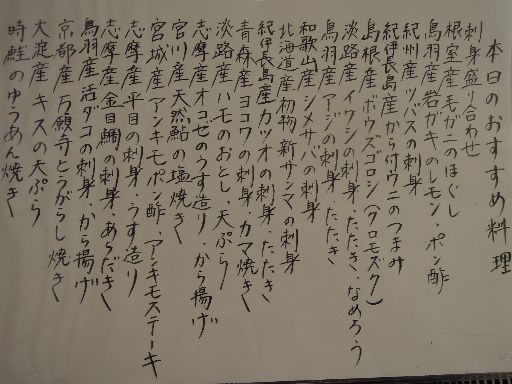 本日のおすすめ料理
刺身盛り合わせ
根室産毛ガニのほぐし
鳥羽産岩ガキのレモン・ポン酢
紀州産ツバスの刺身
紀伊長島産から付ウニのつまみ
島根産ボウズゴロシ(クロモズク)
淡路産イワシの刺身・たたき・なめろう
鳥羽産アジの刺身・たたき
和歌山産シメサバの刺身
北海道産初物新サンマの刺身
紀伊長島産カツオの刺身・たたき
青森産ヨコワの刺身・カマ焼き
淡路産ハモのおとし・天ぷら
志摩産オコゼのうす造り・から揚げ
宮川産天然鮎の塩焼き
宮城産アンキモポン酢・アンキモステーキ
志摩産平目の刺身・うす造り
志摩産金目鯛の刺身・あらだき
鳥羽産活ダコの刺身・から揚げ
京都産万願寺とうがらし焼き
大淀産キスの天ぷら
時鮭のゆうあん焼き